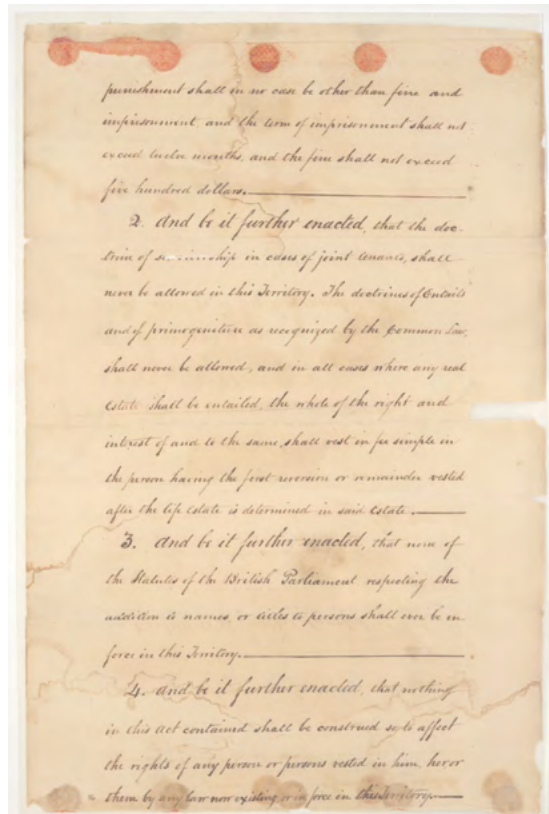 punishment shall in no case be other than fine and
imprisonment, and the term of imprisonment shall not
exceed twelve months, and the fine shall not exceed
five hundred dollars.
2. And be it further enacted, that the doc-
trine of in cases of joint tenants, shall
never be allowed in this Territory. The doctrines of Entails
and of primogeniture as recognized by the Common Law,
shall never be allowed, and in all cases where any real
Estate shall be entailed, the whole of the right and
interest of and to the same, shall vest in fee simple in
the person having the first reversion or remainder vested
after the life Estate is determined in said Estate.
3. And be it further enacted, that none of
the Statutes of the British Parliament respecting the
addition to names, or titles to persons shall ever be in
force in this Territory.
4. And be it further enacted, that nothing
in this act contained shall be construed so to affect
the rights of any person or persons vested in him, her, or
them by any law now existing or in force in this Territory.